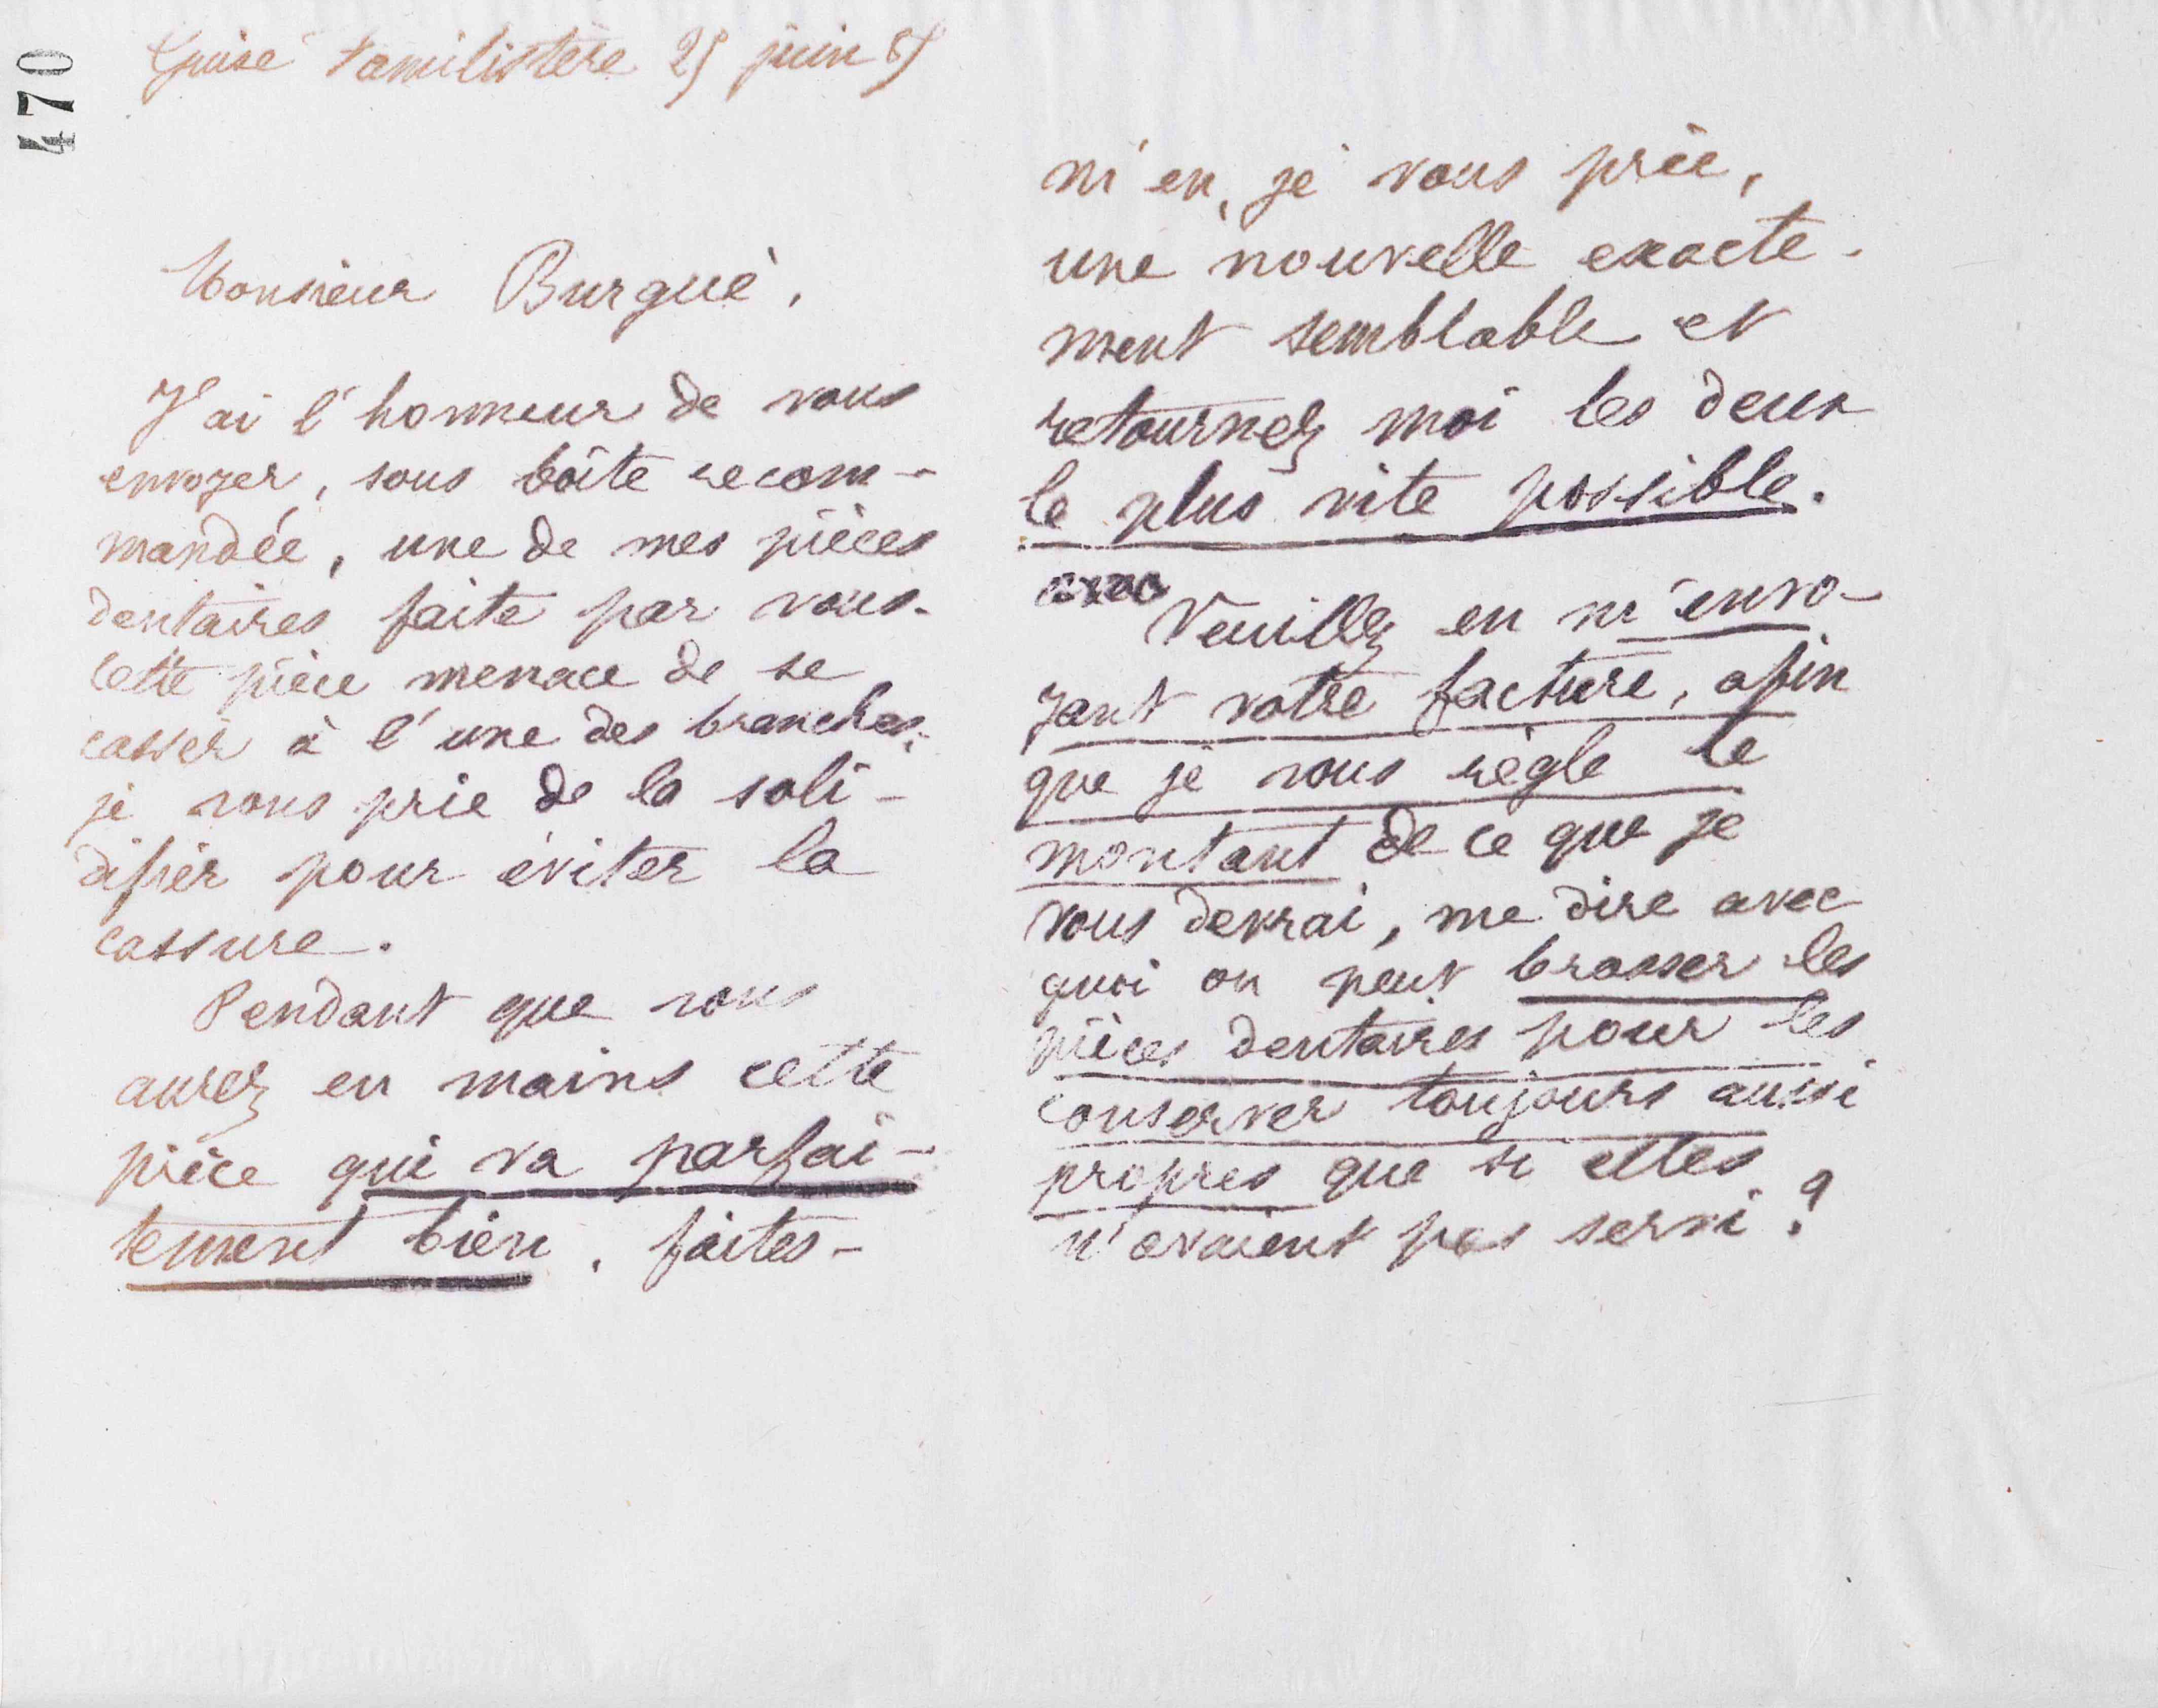 470
Guise Familistère 25 juin 85
Monsieur Burgué,
J'ai l'honneur de vous
envoyer, sous boîte recom-
mandée, une de mes pièces
dentaires faite par vous.
Cette pièce menace de se
casser à l'une des branches;
je vous prie de la soli-
difier pour éviter la
cassure.
Pendant que vous
aurez en mains cette
pièce qui va parfai-
tement bien, faites-
m'en, je vous prie,
une nouvelle exacte-
ment semblable et
retournez moi les deux
le plus vite possible.
Veuillez en m'envo-
yant votre facture, afin
que je vous règle le
montant de ce que je
vous devrai, me dire avec
quoi on peut brosser les
pièces dentaires pour les
conserver toujours aussi
propres que si elles
n'avaient pas servi ?